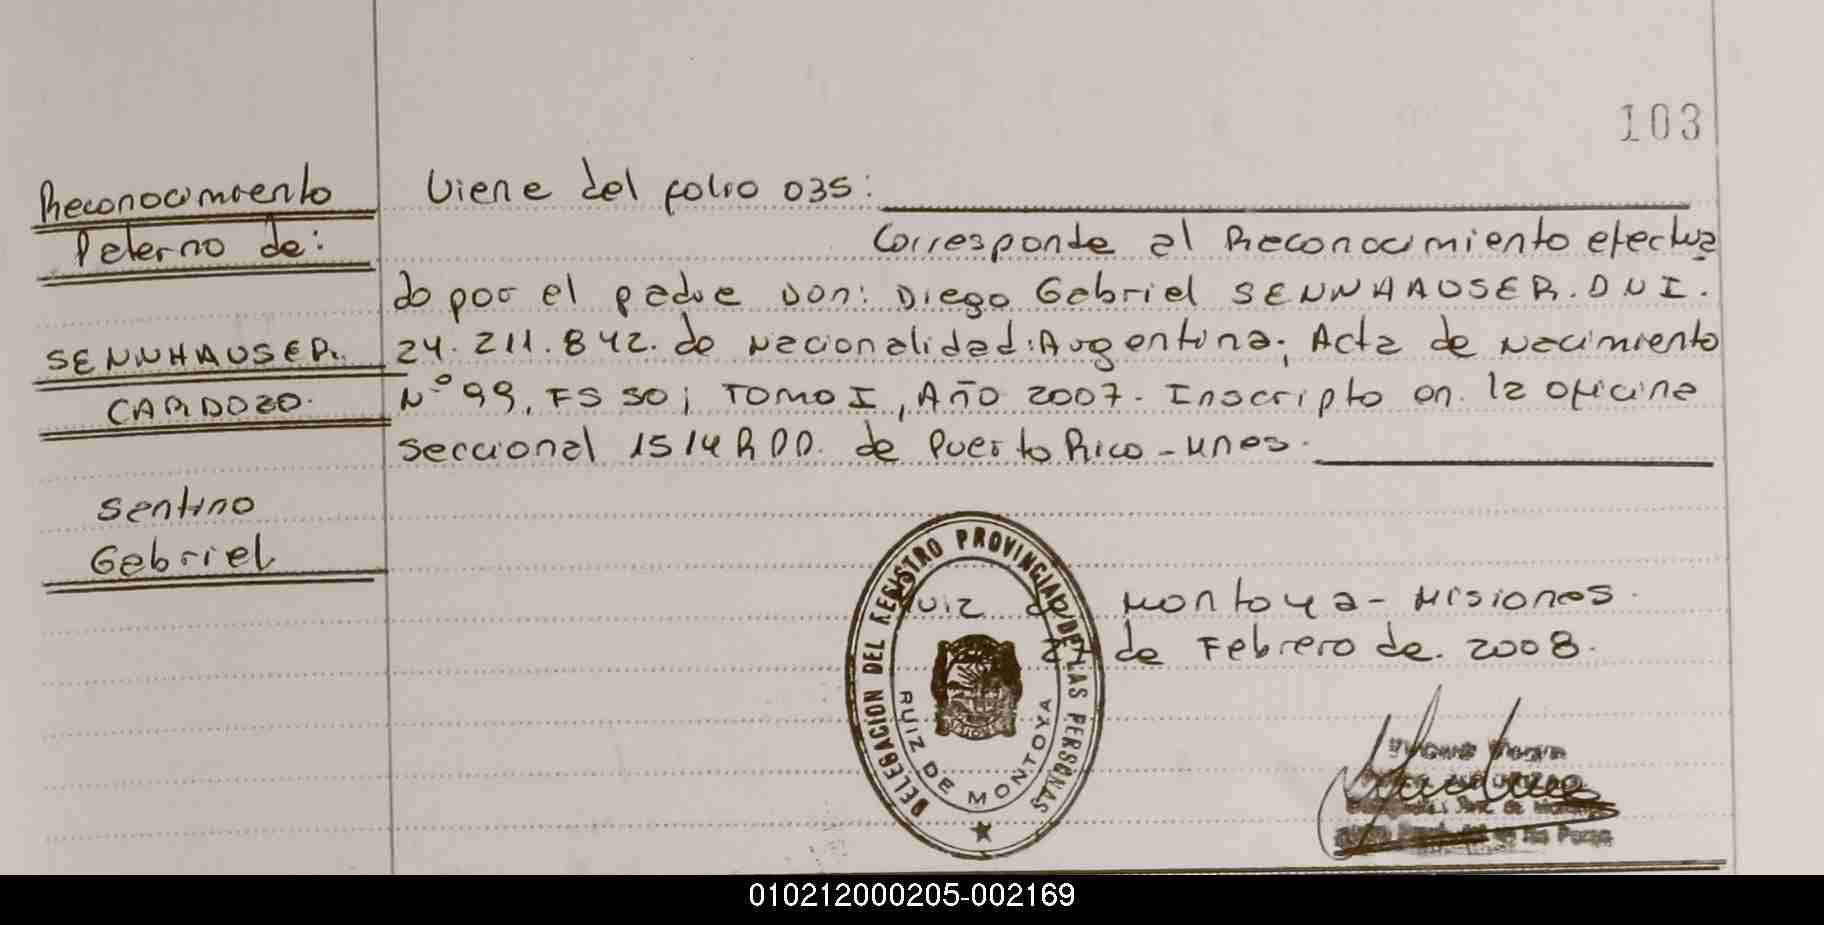 103
Reconocimiento
Paterno de:
SENNHAUSER.
CARDOZO.
Santino
Gabriel
Viene del folio 035:
Corresponde al Reconocimiento efectua
do por el padre Don: Diego Gabriel SENNHAUSER. DNI.
24.211.842. de Nacionalidad: Argentina; Acta de Nacimiento
Nº 99, FS 50; TOMO I, Año 2007. Inscripto en la oficina
seccional 1514 RDD. de Puerto Rico - Mnes.
Ruiz de Montoya - Misiones.
27 de Febrero de. 2008.
DELEGACION DEL REGISTRO PROVINCIAL DE LAS PERSONAS
RUIZ DE MONTOYA
010212000205-002169